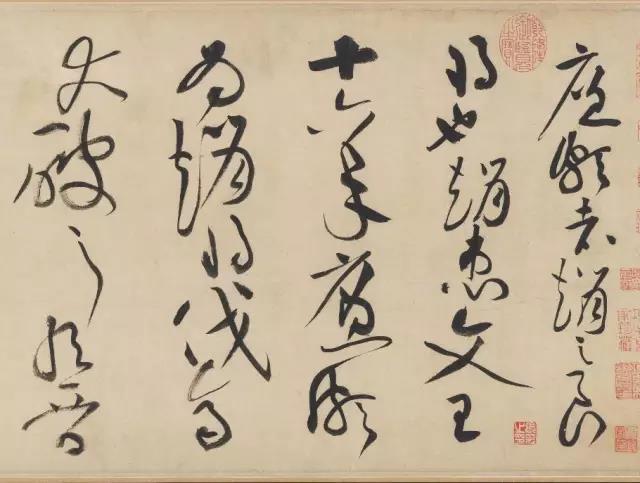 廉頗者趙之良
將也趙惠文王
十六年廉頗
為趙將伐齊
大破之取晉